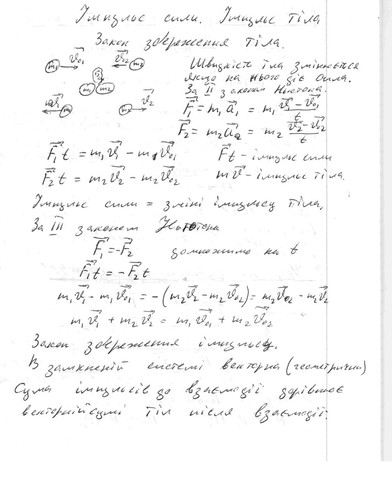 Імпульс сили. Імпульс тіла
Закон збереження тіла.
m₁ v⃗₀₁ v⃗₀₂ m₂
Швидкість тіла змінюється
якщо на нього діє сила.
За II законом Ньютона.
m₁ m₂
v⃗₁ m₁ m₂ v⃗₂
F⃗₁ = m₁a⃗₁ = m₁ (v⃗₁ - v⃗₀₁)/t
F⃗₂ = m₂a⃗₂ = m₂ (v⃗₂ - v⃗₀₂)/t
F⃗₁t = m₁v⃗₁ - m₁v⃗₀₁ F⃗t - імпульс сили
F⃗₂t = m₂v⃗₂ - m₂v⃗₀₂ mv⃗ - імпульс тіла.
Імпульс сили = зміні імпульсу тіла.
За III законом Ньютона
F⃗₁ = -F⃗₂ домножимо на t
F⃗₁t = -F⃗₂t
m₁v⃗₁ - m₁v⃗₀₁ = -(m₂v⃗₂ - m₂v⃗₀₂) = m₂v⃗₀₂ - m₂v⃗₂
m₁v⃗₁ + m₂v⃗₂ = m₁v⃗₀₁ + m₂v⃗₀₂
Закон збереження імпульсу.
В замкненій системі векторна (геометрична)
Сума імпульсів до взаємодії дорівнює
векторній сумі тіл після взаємодії.